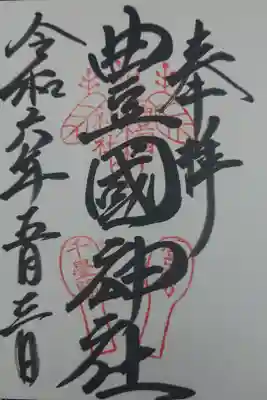 奉拝
豊國神社
令和六年五月三日